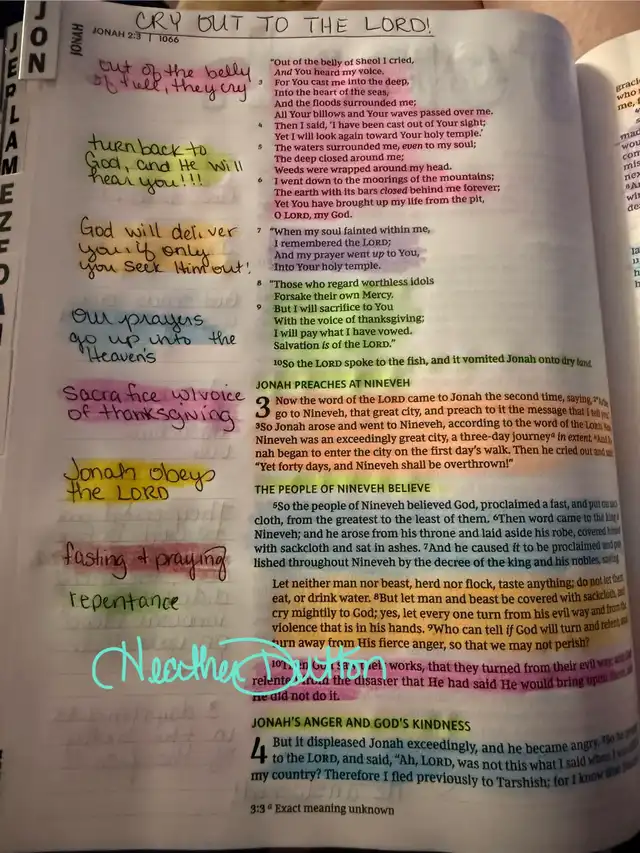 CRY OUT TO THE LORD!
JON
JONAH
JONAH 2:3 | 1066
JERLAMEZE
out of the belly
of hell, they cry
turn back to
God, and He will
hear you!!!
God will deliver
you if only
you seek Him out!
Our prayers
go up into the
Heaven's
Sacrafice w/voice
of thanksgiving
Jonah obeys
the LORD
fasting + praying
repentance
Heather Dutton
"Out of the belly of Sheol I cried,
And You heard my voice.
3 For You cast me into the deep,
Into the heart of the seas,
And the floods surrounded me;
All Your billows and Your waves passed over me.
4 Then I said, 'I have been cast out of Your sight;
Yet I will look again toward Your holy temple.'
5 The waters surrounded me, even to my soul;
The deep closed around me;
Weeds were wrapped around my head.
6 I went down to the moorings of the mountains;
The earth with its bars closed behind me forever;
Yet You have brought up my life from the pit,
O LORD, my God.
7 "When my soul fainted within me,
I remembered the LORD;
And my prayer went up to You,
Into Your holy temple.
8 "Those who regard worthless idols
Forsake their own Mercy.
9 But I will sacrifice to You
With the voice of thanksgiving;
I will pay what I have vowed.
Salvation is of the LORD."
10So the LORD spoke to the fish, and it vomited Jonah onto dry land.
JONAH PREACHES AT NINEVEH
3 Now the word of the LORD came to Jonah the second time, saying,
go to Nineveh, that great city, and preach to it the message that I tell you."
3So Jonah arose and went to Nineveh, according to the word of the LORD.
Nineveh was an exceedingly great city, a three-day journey6 in extent.
nah began to enter the city on the first day's walk. Then he cried out and
"Yet forty days, and Nineveh shall be overthrown!"
THE PEOPLE OF NINEVEH BELIEVE
5So the people of Nineveh believed God, proclaimed a fast, and put on sack
cloth, from the greatest to the least of them. 6Then word came to the king
Nineveh; and he arose from his throne and laid aside his robe, covered
with sackcloth and sat in ashes. 7And he caused it to be proclaimed and pub
lished throughout Nineveh by the decree of the king and his nobles, saying,
Let neither man nor beast, herd nor flock, taste anything; do not let them
eat, or drink water. 8But let man and beast be covered with sackcloth, and
cry mightily to God; yes, let every one turn from his evil way and from the
violence that is in his hands. 9Who can tell if God will turn and relent, and
turn away from His fierce anger, so that we may not perish?
10Then God saw their works, that they turned from their evil way;
relented from the disaster that He had said He would bring upon
He did not do it.
JONAH'S ANGER AND GOD'S KINDNESS
4 But it displeased Jonah exceedingly, and he became angry.
to the LORD, and said, "Ah, LORD, was not this what I said when I
my country? Therefore I fled previously to Tarshish; for I know
3:3 6 Exact meaning unknown